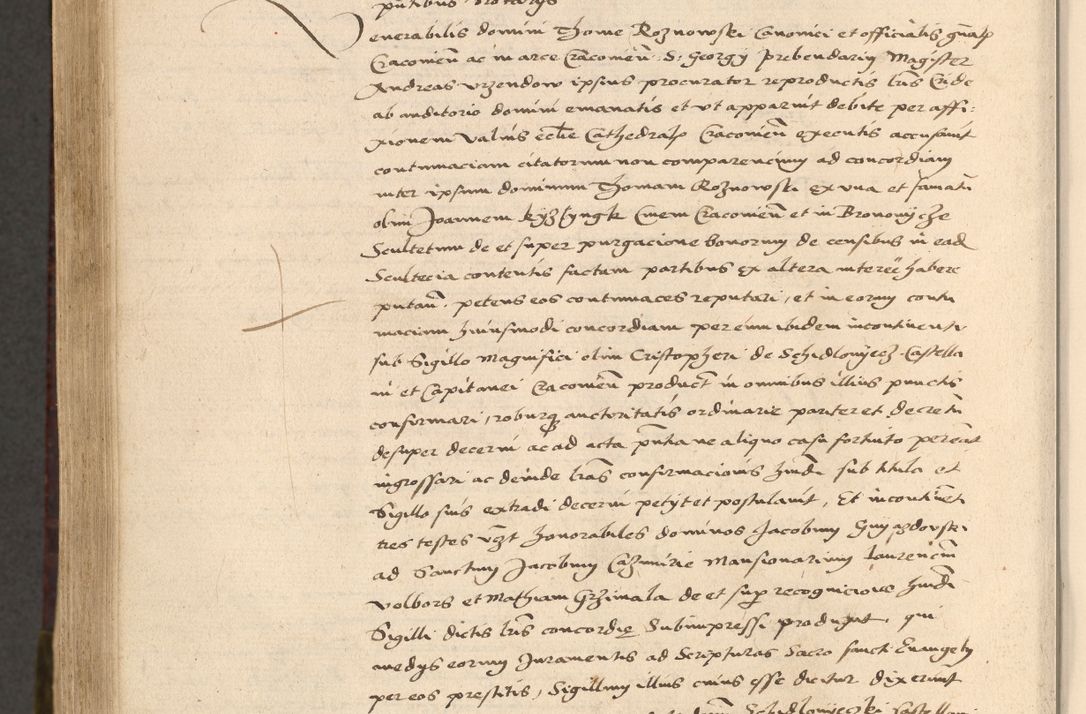 pñtibus Notarys
Venerabilis domini Thome Roznowski Canonici et officialis gñalis
Cracovieñ ac in arce Cracovieñ S: Georgÿ prebendarÿ Magister
Andreas vrzendow ipsius procurator reproductis lris Cride
ab auditorio domini emanatis et vt apparuit debite per affi:
xionem valuis eccłie Cathedralis Cracovieñ executis accusauit
contumaciam citatorum non comparencium ad concordiam
inter ipsum dominum Thomam Roznowski ex vna et famatu
olim Joannem Civem Cracovieñ et in
Scultetum de et super purgacione bonorum de censibus in ead
Scultecia contentis factam partibus ex altera habere
putañ. petens eos contumaces reputari, et in eorum contu
maciam huiusmodi concordiam per eum ibidem incontinenti
sub Sigillo Magnifici olim Cristopheri de Schidlovyecz Castella
ni et Capitanei Cracovieñ product in omnibus illius punctis
confirmari, roburq auctoritatis ordinarie pariter et decretu
desuper decerni ac ad acta pñtia ne aliquo casu fortuito pereat
ingrossari ac deinde lras confirmacionis hmdi sub titulo et
Sigillo suis extradi decerni petyt et postulauit, Et incontineti
tres testes vczt honorabiles dominos Jacobum
ad Sanctum Jacobum Cazimirie Mansionarium Laurencium
volbors et Mathiam Grzimala de et sup recognicione hmdi
Sigilli dictis lris concordie Subimpressi produxit, qui
medys eorum Juramentis ad Scripturas Sacro sancti Euangely
per eos prestitis, Sigillum illius cuius esse dicitur dixerunt
Schidlovyeczki Castellani